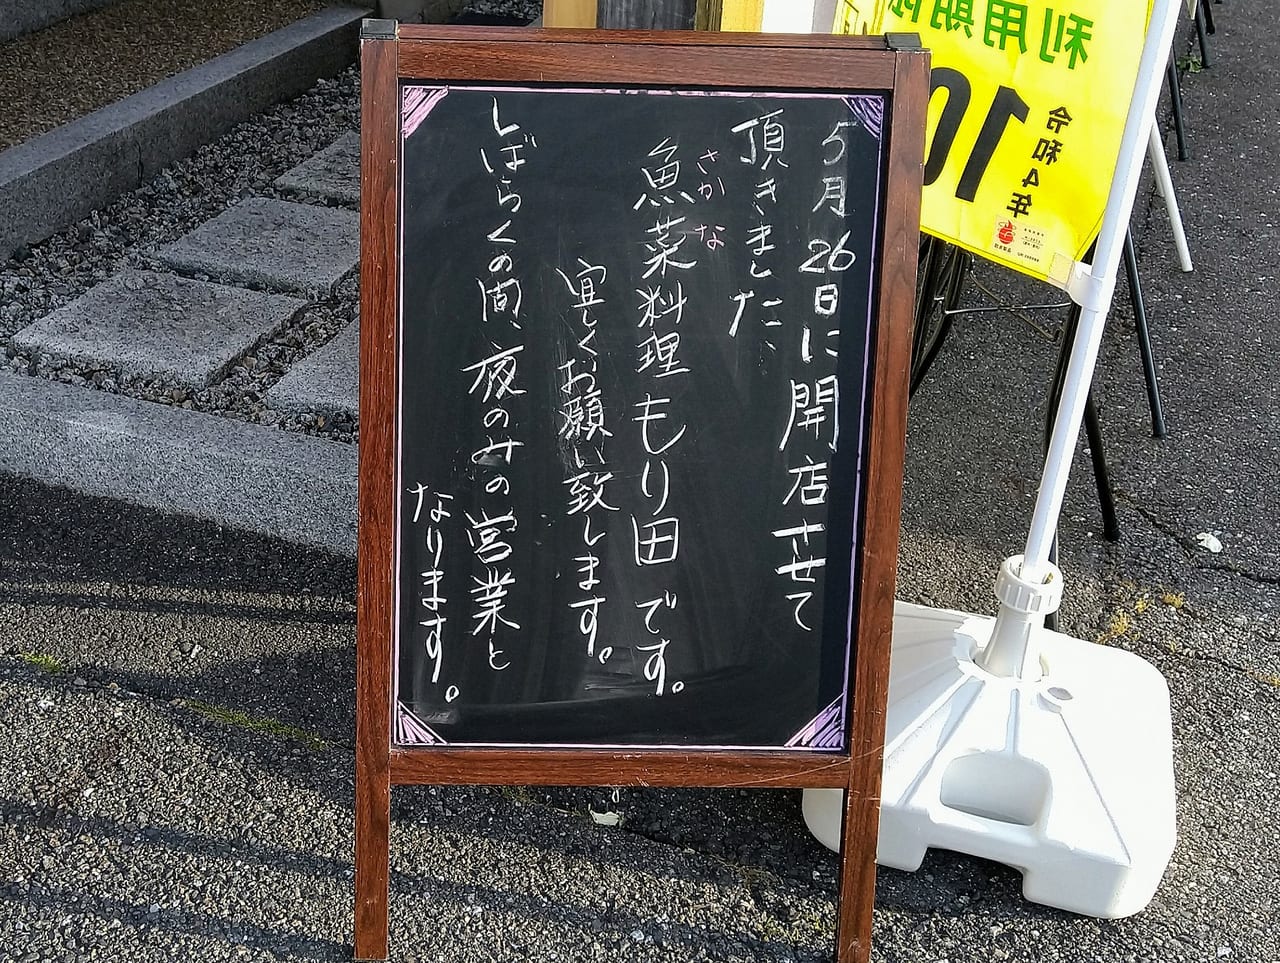 5月26日に開店させて
頂きました、
さかな
魚菜料理もり田です。
宜しくお願い致します。
しばらくの間、夜のみの営業と
なります。
利用期限
令和4年
10